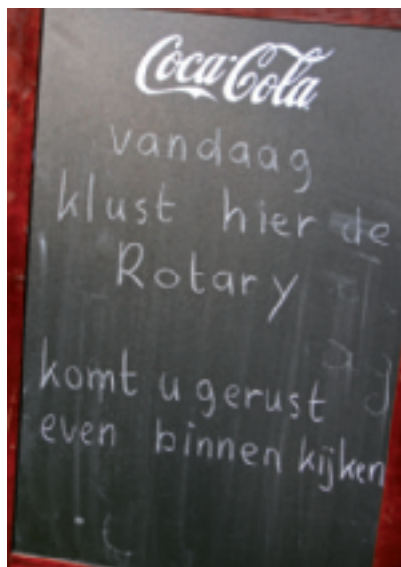 Coca-Cola
vandaag
klust hier de
Rotary
komt u gerust
even binnen kijken